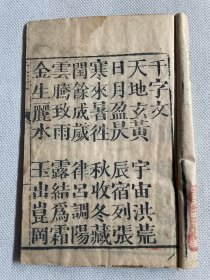 千字文
天地玄黃　宇宙洪荒
日月盈昃　辰宿列張
寒來暑徃　秋收冬藏
閏餘成歲　律呂調陽
雲騰致雨　露結爲霜
金生麗水　玉出崑岡